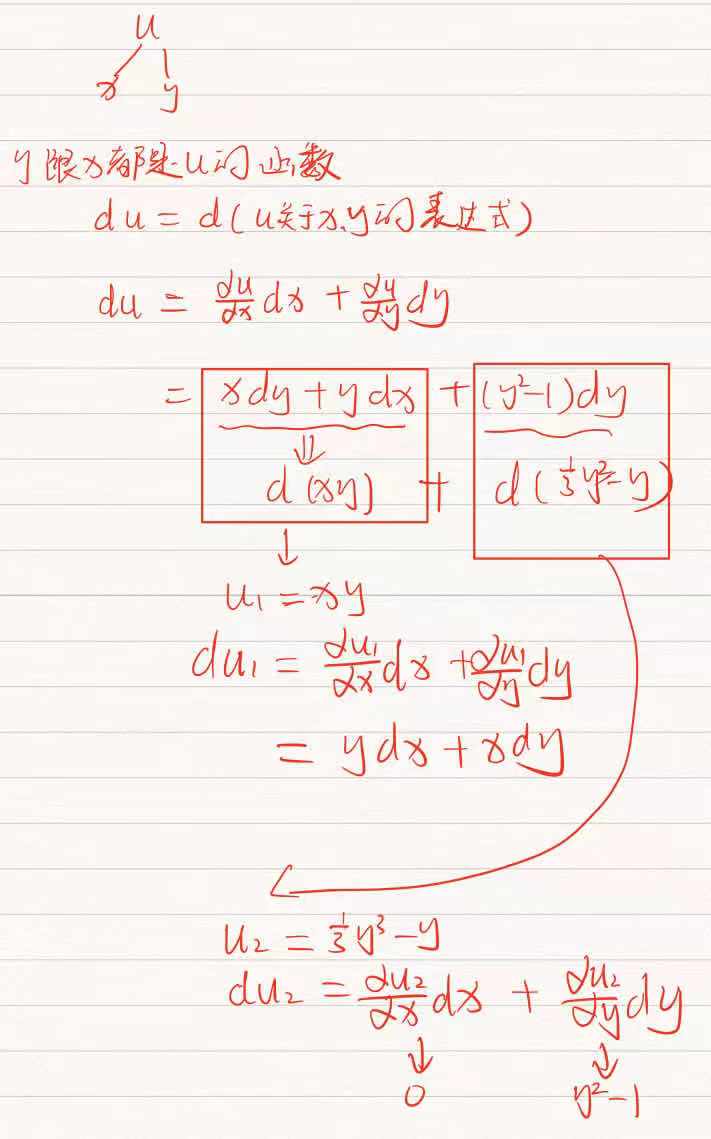 u
x y
y跟x都是u的函数
du = d(u关于x、y的表达式)
du = ∂u/∂x dx + ∂u/∂y dy
= xdy + ydx + (y²-1)dy
⇓
d(xy) + d(⅓y³-y)
↓
u₁ = xy
du₁ = ∂u₁/∂x dx + ∂u₁/∂y dy
= ydx + xdy
u₂ = ⅓y³-y
du₂ = ∂u₂/∂x dx + ∂u₂/∂y dy
↓ ↓
0 y²-1